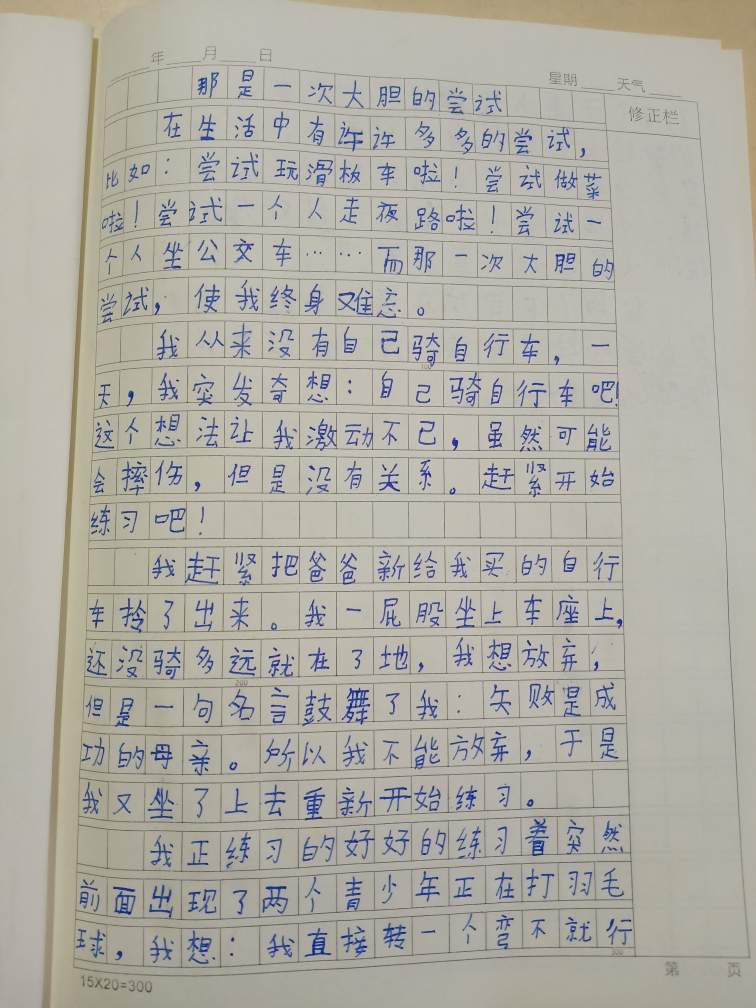 年 月 日
星期 天气
修正栏
那是一次大胆的尝试
在生活中有许许多多的尝试，
比如：尝试玩滑板车啦！尝试做菜
啦！尝试一个人走夜路啦！尝试一
个人坐公交车……而那一次大胆的
尝试，使我终身难忘。
我从来没有自己骑自行车，一
天，我突发奇想：自己骑自行车吧！
这个想法让我激动不已，虽然可能
会摔伤，但是没有关系。赶紧开始
练习吧！
我赶紧把爸爸新给我买的自行
车拎了出来。我一屁股坐上车座上，
还没骑多远就在了地，我想放弃，
200
但是一句名言鼓舞了我：失败是成
功的母亲。所以我不能放弃，于是
我又坐了上去重新开始练习。
我正练习的好好的练习着突然
前面出现了两个青少年正在打羽毛
球，我想：我直接转一个弯不就行
300
15X20=300
第 页